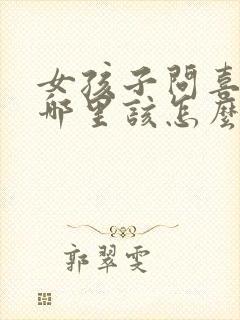 女孩子問喜
哪里該怎麼
郭翠雯